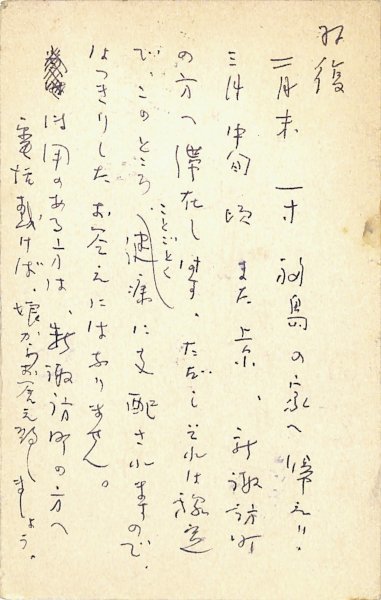 拝復
二月末 一寸 福島の家へ帰り、
三月中旬頃 また上京、新諏訪町
の方へ滞在します。ただしそれは予定
で、このところ、ことごとく健康に支配されますので、
はっきりしたお答えにはなりません。
御用のある方は、新諏訪町の方へ
電話頂けば、娘からお答え致しましょう。